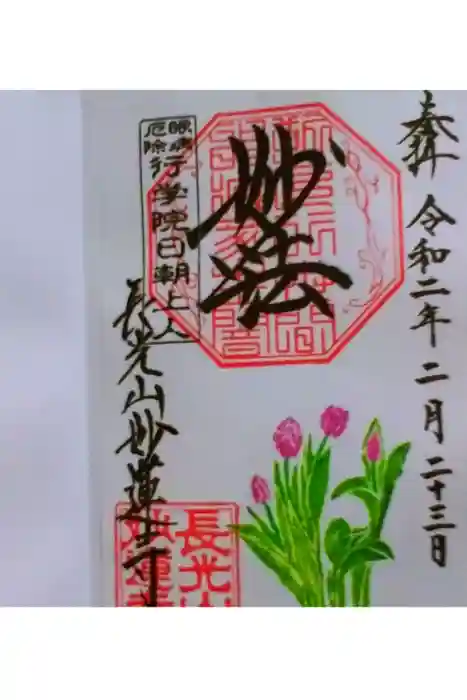 奉拝 令和二年二月二十三日
妙法
眼病
厄除
行学院日朝上人
長光山妙蓮寺
長光山
妙蓮寺